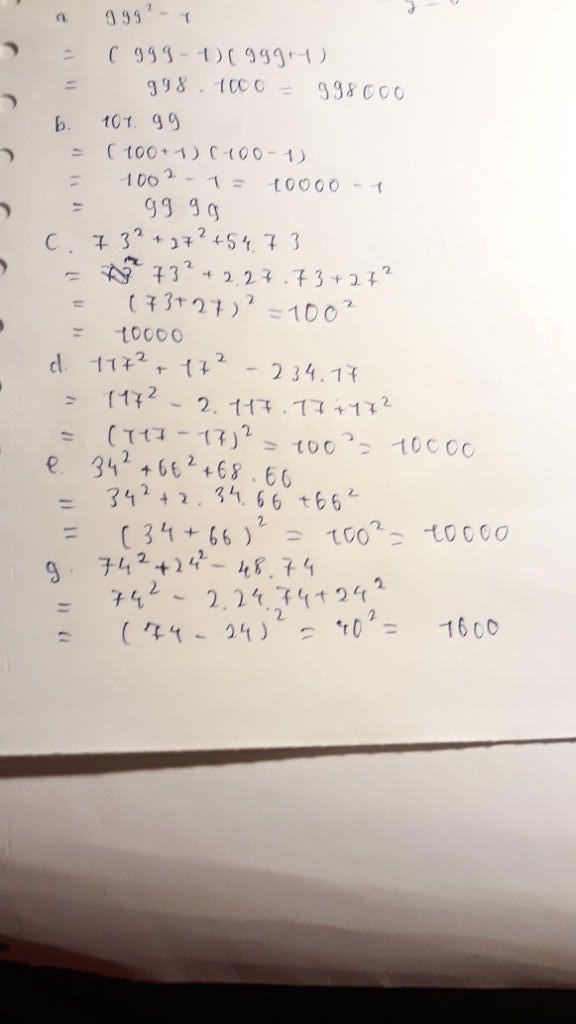 a 999² - 1
= (999-1)(999+1)
= 998 . 1000 = 998000
b. 101. 99
= (100+1)(100-1)
= 100² - 1 = 10000 - 1
= 9999
c. 73² + 27² + 54.73
= 73² + 2.27.73 + 27²
= (73+27)² = 100²
= 10000
d. 117² + 17² - 234.17
= 117² - 2.117.17 + 17²
= (117 - 17)² = 100² = 10000
e. 34² + 66² + 68.66
= 34² + 2.34.66 + 66²
= (34 + 66)² = 100² = 10000
g. 74² + 24² - 48.74
= 74² - 2.24.74 + 24²
= (74 - 24)² = 40² = 1600